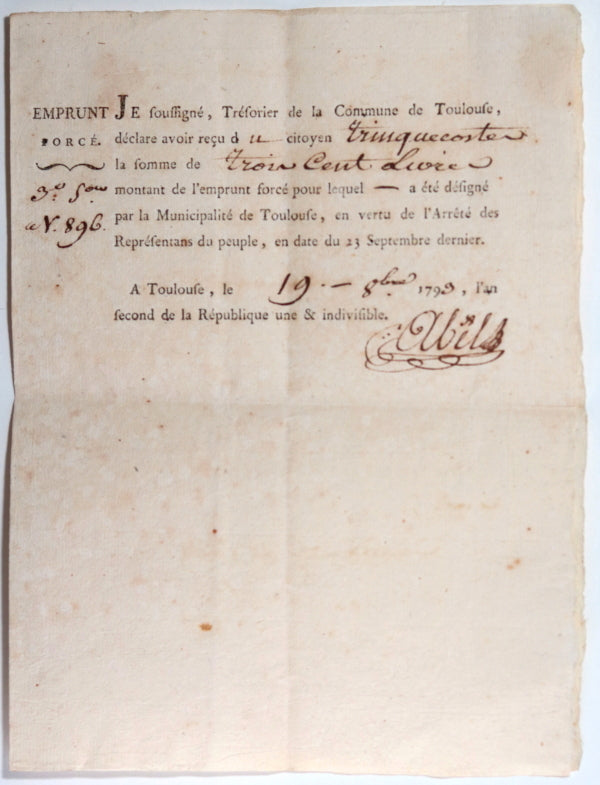 EMPRUNT JE soussigné, Trésorier de la Commune de Toulouse,
FORCÉ. déclare avoir reçu du citoyen trinquecoste
la somme de trois Cent Livre
montant de l'emprunt forcé pour lequel — a été désigné
N.° 896. par la Municipalité de Toulouse, en vertu de l'Arrêté des
Représentans du peuple, en date du 23 Septembre dernier.
A Toulouse, le 19. — 8bre 1793, l'an
second de la République une & indivisible.
Abel